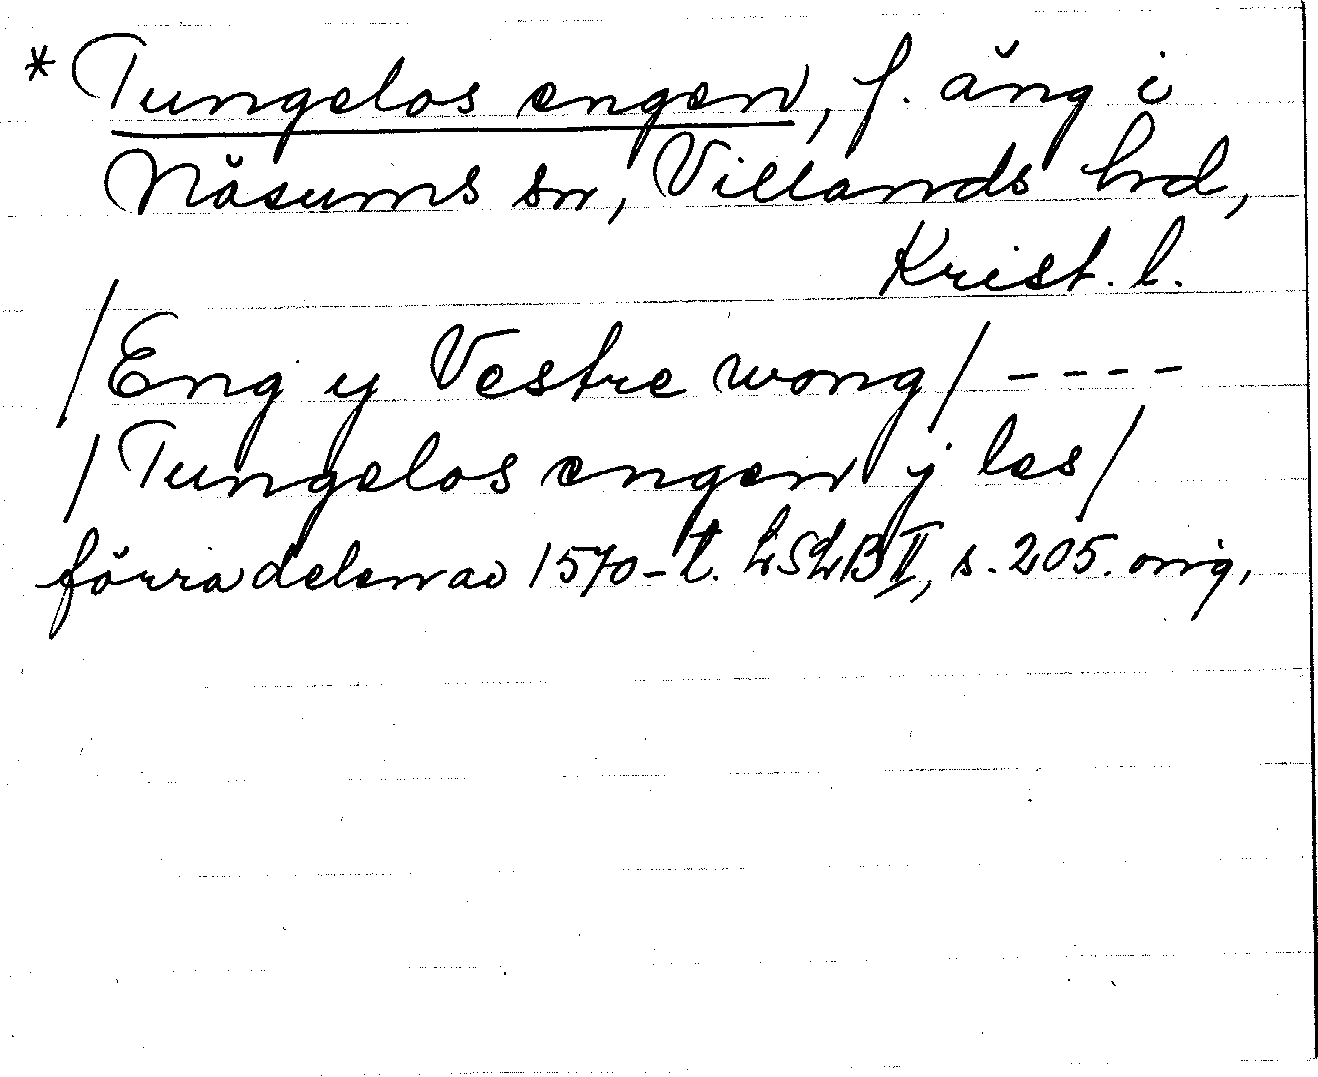 * Tungelos engen, f. äng i
Näsums sn, Villands hrd,
Krist. l.
/Eng y Vestre wong/ ----
/Tungelos engen y les/
förra delen av 1570-t. LSLB II, s. 205. orig.